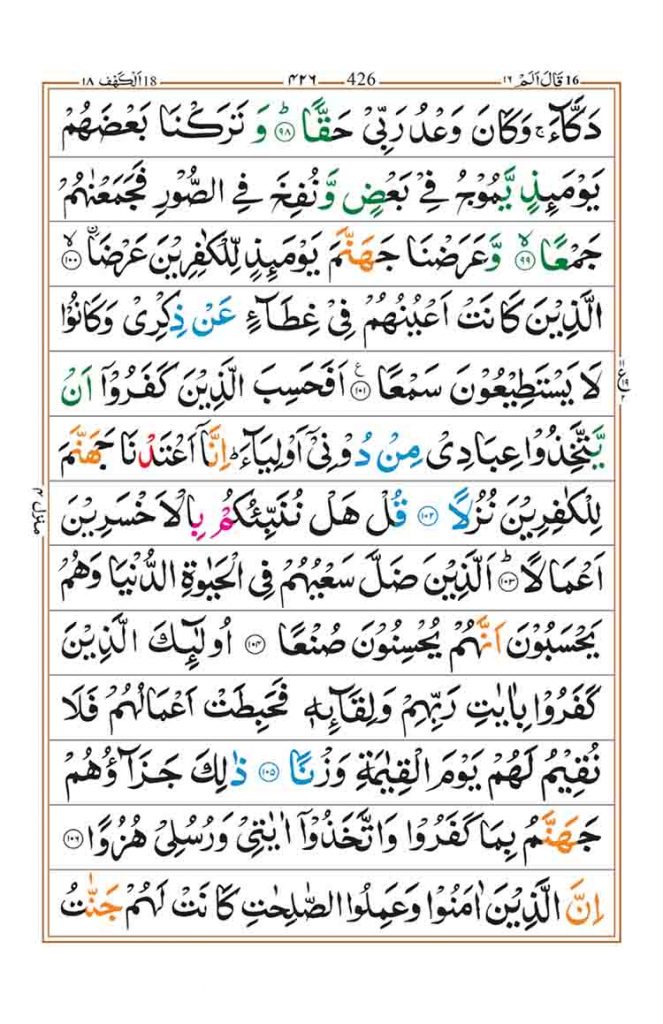 16 قَالَ اَلَمْ ١٦ 426 ٤٢٦ 18 اَلْكَهْف ١٨
دَكَّآءَ ۚ وَكَانَ وَعْدُ رَبِّىْ حَقًّا ؕ ﴿۹۸﴾ وَ تَرَكْنَا بَعْضَهُمْ
يَوْمَئِذٍ يَّمُوْجُ فِىْ بَعْضٍ وَّنُفِخَ فِى الصُّوْرِ فَجَمَعْنٰهُمْ
جَمْعًا ۙ ﴿۹۹﴾ وَّعَرَضْنَا جَهَنَّمَ يَوْمَئِذٍ لِّلْكٰفِرِيْنَ عَرْضَا ۙ ﴿۱۰۰﴾
الَّذِيْنَ كَانَتْ اَعْيُنُهُمْ فِىْ غِطَآءٍ عَنْ ذِكْرِىْ وَكَانُوْا
لَا يَسْتَطِيْعُوْنَ سَمْعًا ﴿۱۰۱﴾ اَفَحَسِبَ الَّذِيْنَ كَفَرُوْۤا اَنْ
يَّتَّخِذُوْا عِبَادِىْ مِنْ دُوْنِىْۤ اَوْلِيَآءَ ؕ اِنَّاۤ اَعْتَدْنَا جَهَنَّمَ
لِلْكٰفِرِيْنَ نُزُلًا ﴿۱۰۲﴾ قُلْ هَلْ نُنَبِّئُكُمْ بِالْاَخْسَرِيْنَ
اَعْمَالًا ؕ ﴿۱۰۳﴾ اَلَّذِيْنَ ضَلَّ سَعْيُهُمْ فِى الْحَيٰوةِ الدُّنْيَا وَهُمْ
يَحْسَبُوْنَ اَنَّهُمْ يُحْسِنُوْنَ صُنْعًا ﴿۱۰۴﴾ اُولٰٓئِكَ الَّذِيْنَ
كَفَرُوْا بِاٰيٰتِ رَبِّهِمْ وَلِقَآئِهٖ فَحَبِطَتْ اَعْمَالُهُمْ فَلَا
نُقِيْمُ لَهُمْ يَوْمَ الْقِيٰمَةِ وَزْنًا ﴿۱۰۵﴾ ذٰلِكَ جَزَآؤُهُمْ
جَهَنَّمُ بِمَا كَفَرُوْا وَاتَّخَذُوْۤا اٰيٰتِىْ وَرُسُلِىْ هُزُوًا ﴿۱۰۶﴾
اِنَّ الَّذِيْنَ اٰمَنُوْا وَعَمِلُوا الصّٰلِحٰتِ كَانَتْ لَهُمْ جَنّٰتُ
منزل ۴